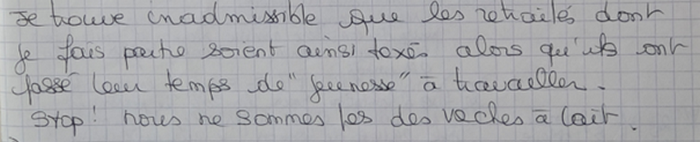 Je trouve inadmissible que les retraités dont
je fais partie soient ainsi taxés alors qu'ils ont
passé leur temps de "jeunesse" à travailler.
Stop! nous ne sommes pas des vaches à lait.